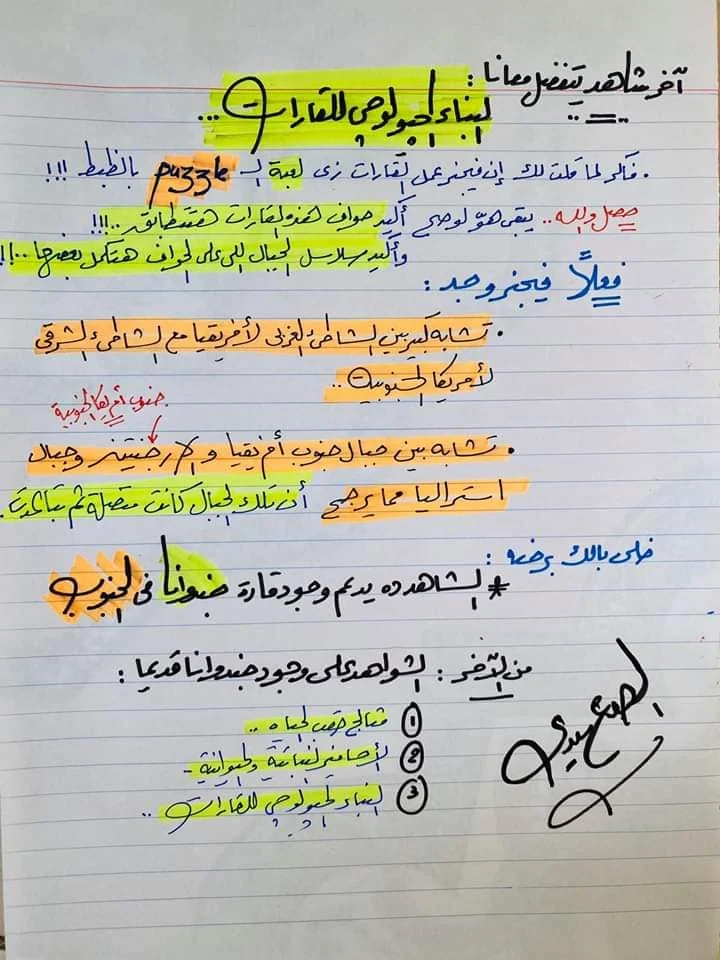 آخر شاهد يتفضل معانا :
البناء الجيولوجي للقارات ...
• فاكر لما قلت لك إن فيجنر عمل القارات زى لعبة الـ puzzle بالظبط !!!
حصل والله .. يبقى هوّ لو صح أكيد حواف هذه القارات هتتطابق ..!!!
وأكيد سلاسل الجبال اللى على الحواف هتكمل بعضها ..!!
فعلاً فيجنر وجد :
• تشابه كبير بين الشاطئ الغربى لأفريقيا مع الشاطئ الشرقى
لأمريكا الجنوبية ..
جنوب أمريكا الجنوبية
• تشابه بين جبال جنوب أفريقيا و الارجنتين وجبال
استراليا مما يرجح أن تلك الجبال كانت متصلة ثم تباعدت
خلى بالك برضه :
* الشاهد ده يدعم وجود قارة جندوانا فى الجنوب
من الآخر : الشواهد على وجود جندوانا قديما :
① مثالج حقب الحياه ..
② الأحافير النباتية والحيوانية ..
③ البناء الجيولوجى للقارات ..